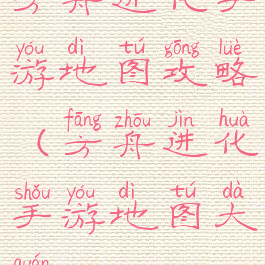 方舟进化手
yóu dì tú gōng lüè
游地图攻略
fāng zhōu jìn huà
（方舟进化
shǒu yóu dì tú dà
手游地图大
quán